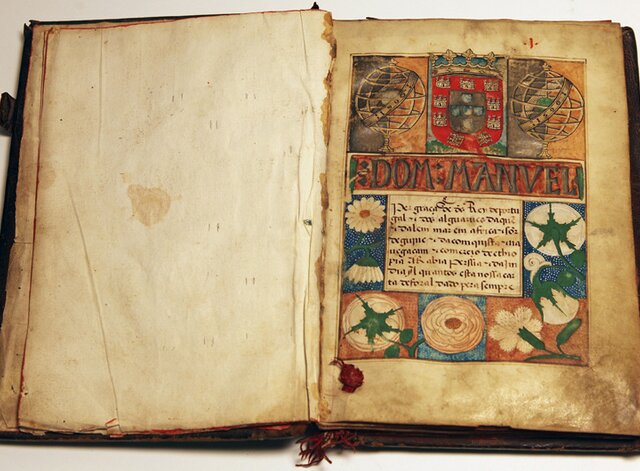 DOM: MANVEL
Per graça de ds Rey de portu
gal τ dos alguarves daquē
τ dalem mar em africa sōr
de guine τ da conquista na
vegacam τ comercio de ethio
pia arabia perssia τ da in
dia A quantos esta nossa car
ta de foral dado pera sempre